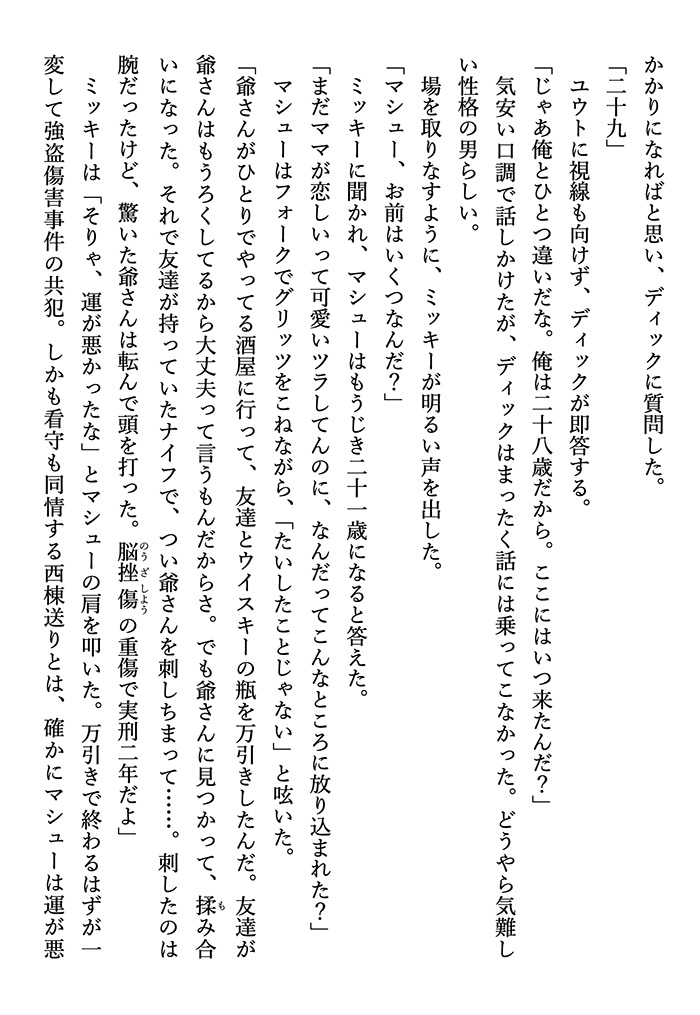 かかりになればと思い、ディックに質問した。
「二十九」
ユウトに視線も向けず、ディックが即答する。
「じゃあ俺とひとつ違いだな。俺は二十八歳だから。ここにはいつ来たんだ?」
気安い口調で話しかけたが、ディックはまったく話には乗ってこなかった。どうやら気難し
い性格の男らしい。
場を取りなすように、ミッキーが明るい声を出した。
「マシュー、お前はいくつなんだ?」
ミッキーに聞かれ、マシューはもうじき二十一歳になると答えた。
「まだママが恋しいって可愛いツラしてんのに、なんだってこんなところに放り込まれた?」
マシューはフォークでグリッツをこねながら、「たいしたことじゃない」と呟いた。
「爺さんがひとりでやってる酒屋に行って、友達とウイスキーの瓶を万引きしたんだ。友達が
爺さんはもうろくしてるから大丈夫って言うもんだからさ。でも爺さんに見つかって、揉み合
いになった。それで友達が持っていたナイフで、つい爺さんを刺しちまって……。刺したのは
腕だったけど、驚いた爺さんは転んで頭を打った。脳挫傷の重傷で実刑二年だよ」
ミッキーは「そりゃ、運が悪かったな」とマシューの肩を叩いた。万引きで終わるはずが一
変して強盗傷害事件の共犯。しかも看守も同情する西棟送りとは、確かにマシューは運が悪